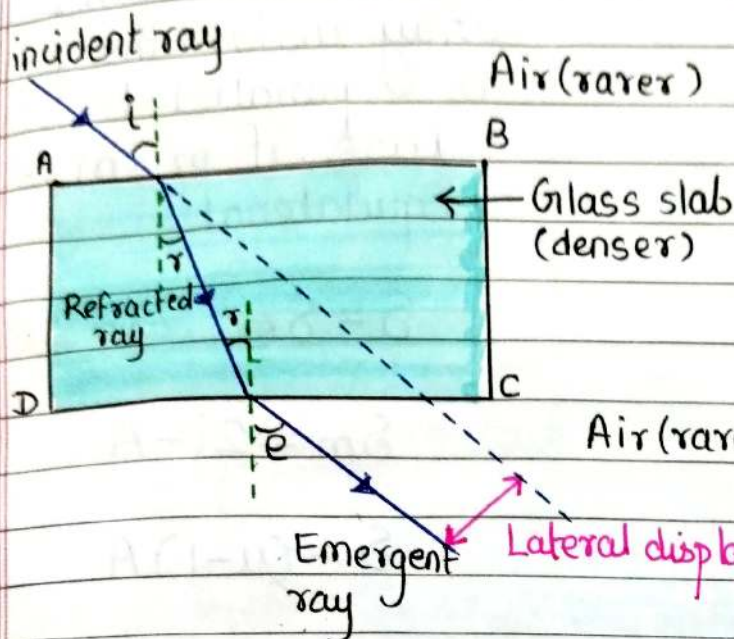 incident ray
Air (rarer)
i
A
B
Glass slab
(denser)
r
Refracted
ray
r
D
C
e
Emergent
ray
Lateral